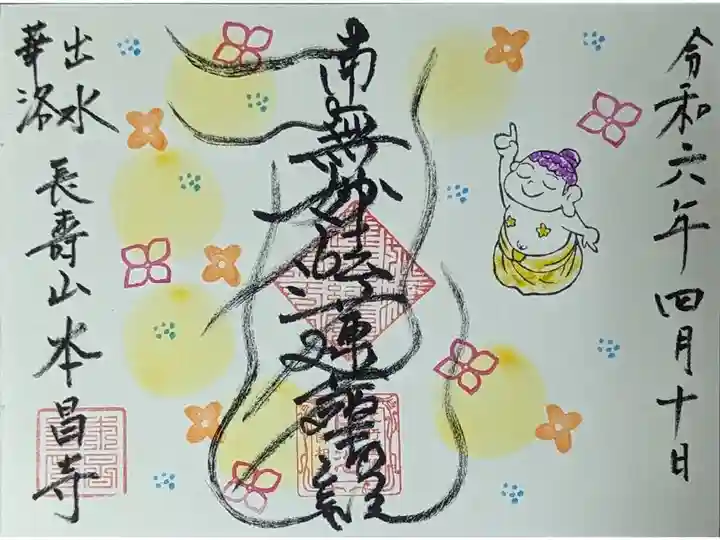 令和六年四月十日
南無妙法蓮華経
出水
華洛
長壽山本昌寺